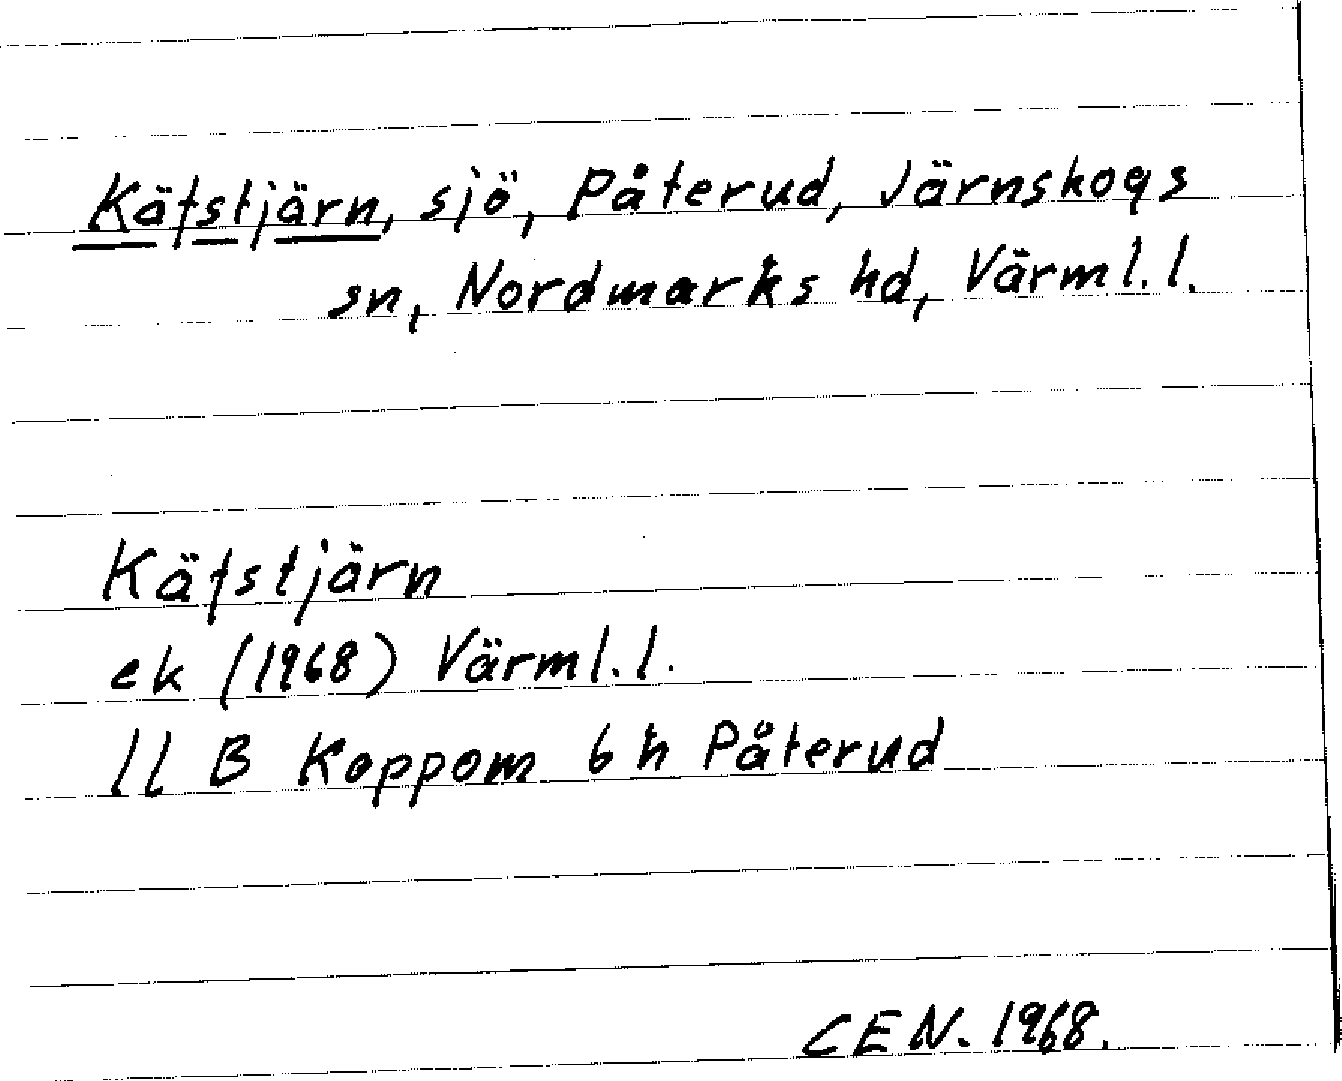 Käfstjärn, sjö, Påterud, Järnskogs
sn, Nordmarks hd, Värml.l.
Käfstjärn
ek (1968) Värml.l.
11 B Koppom 6 h Påterud
CEN. 1968.